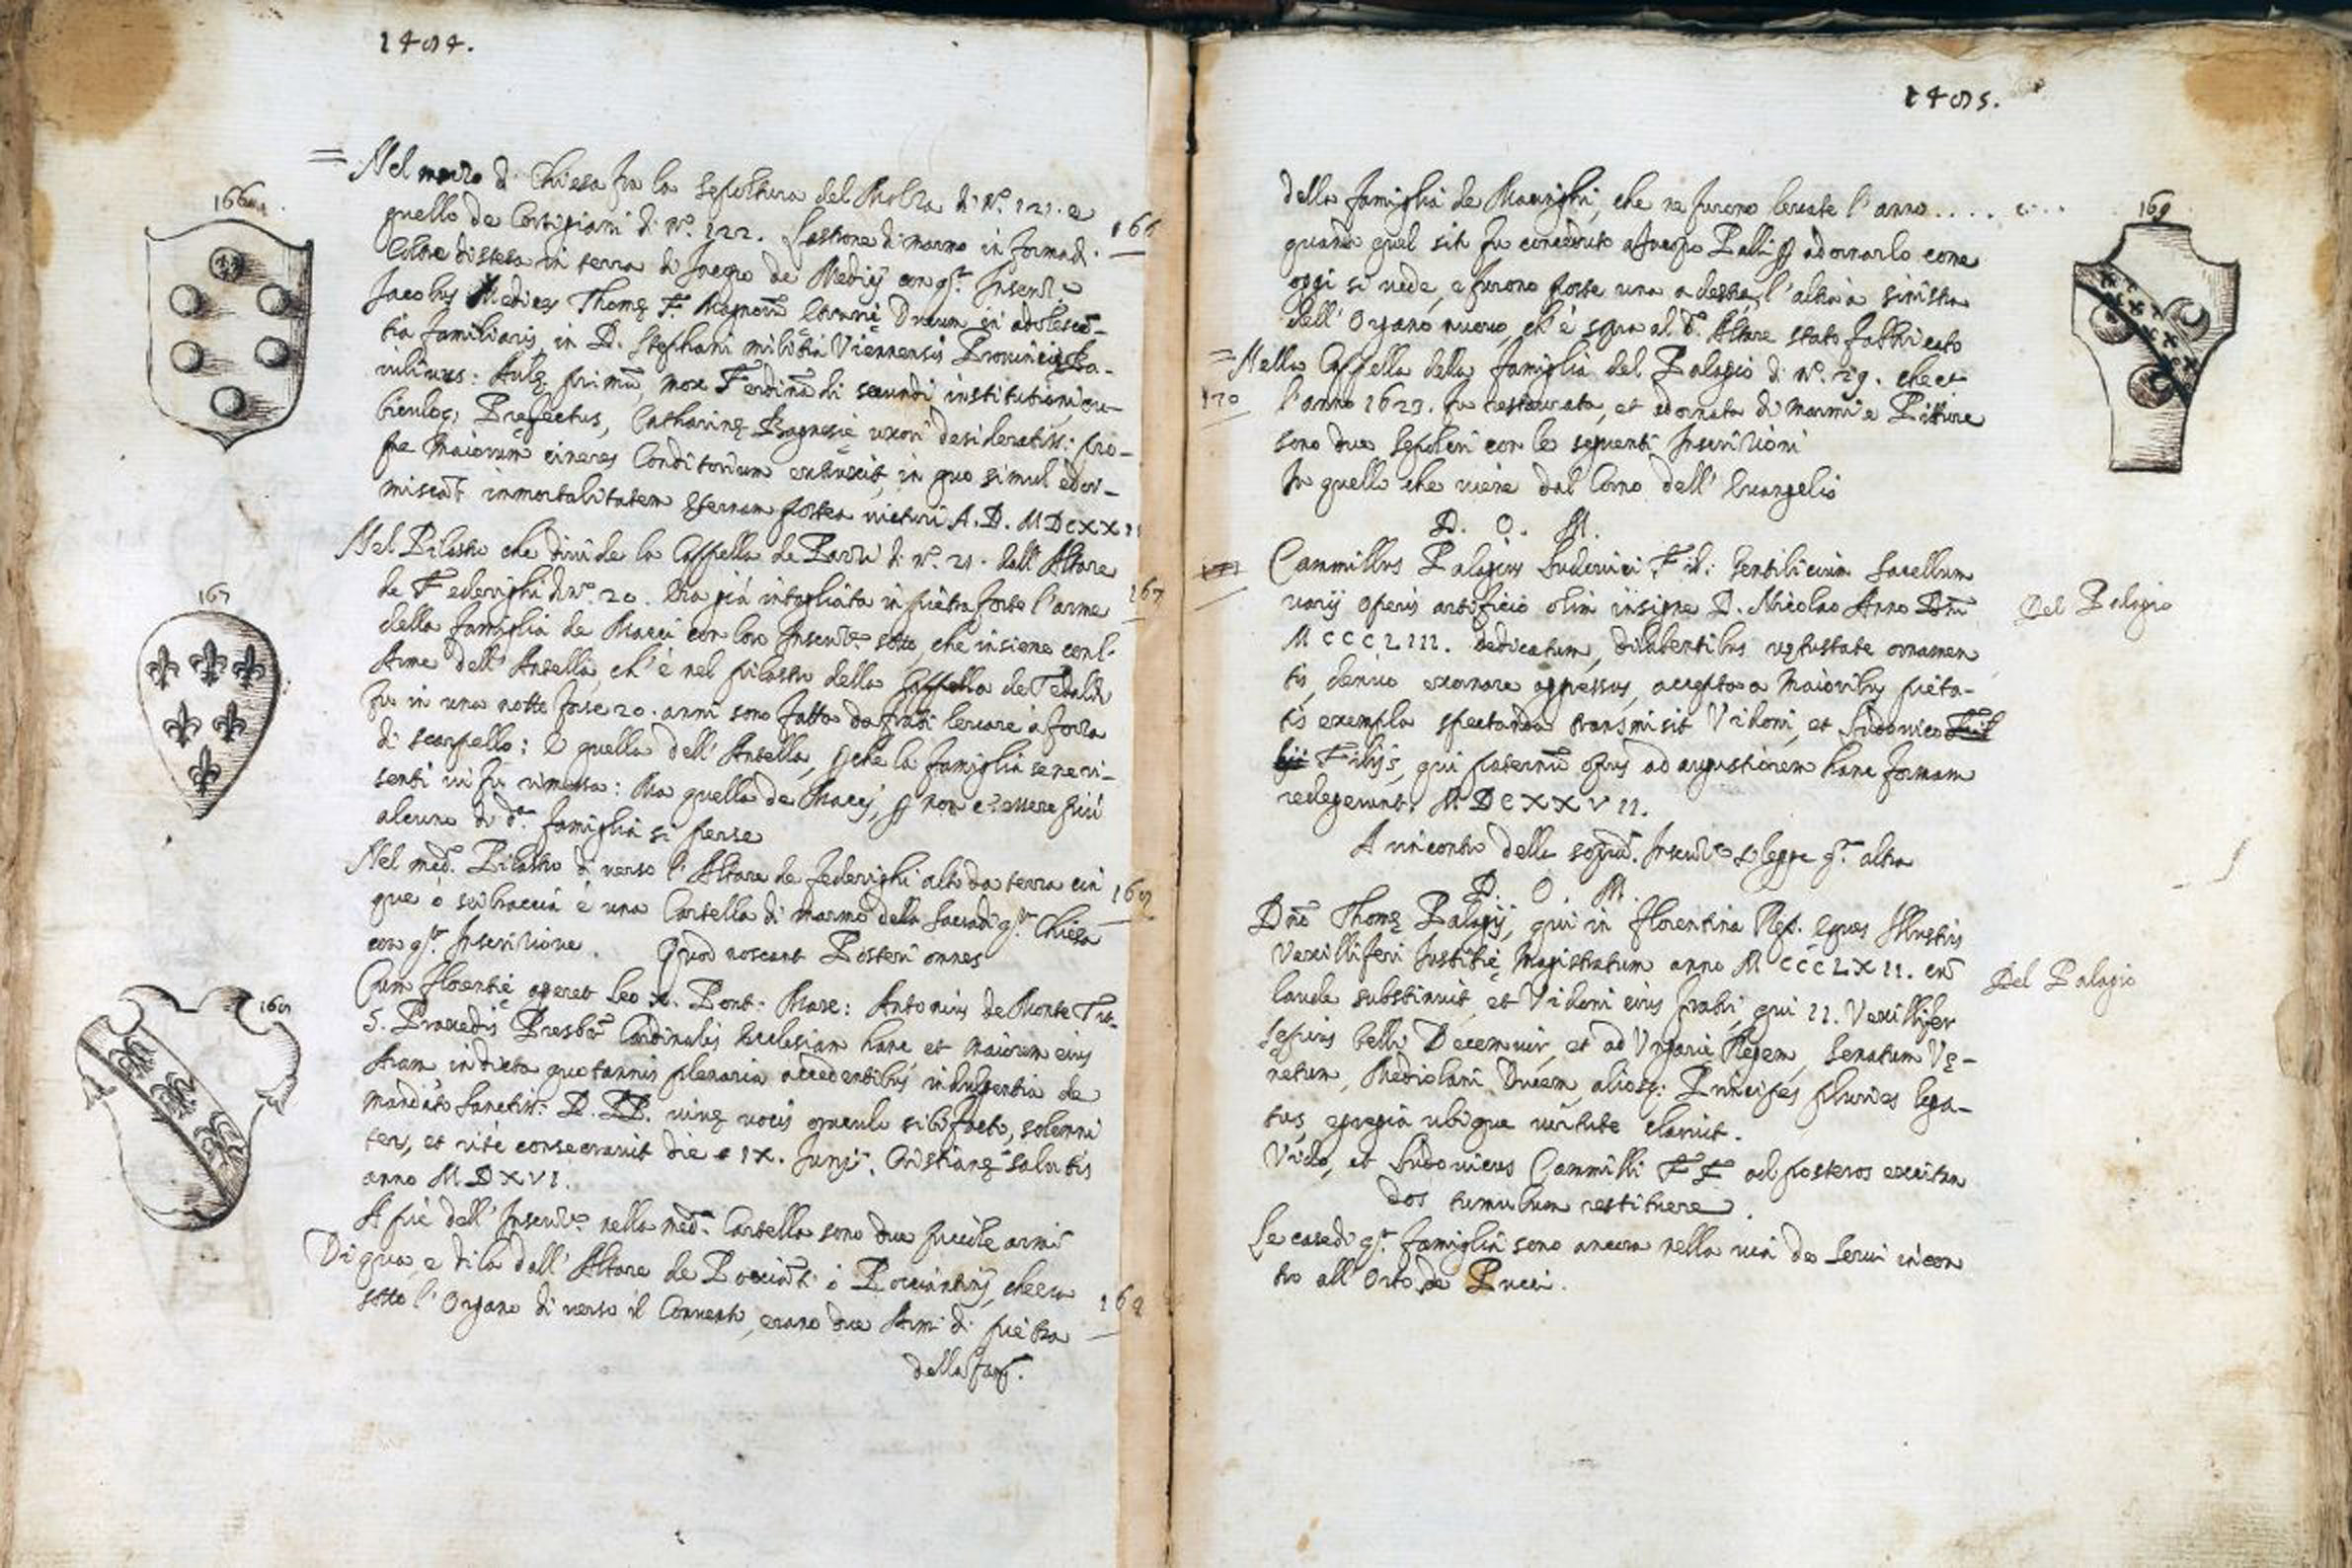 1484.
166
= Nel mezzo di Chiesa fra la sepoltura del Molza di N.º 121. e
quello de Cortigiani di nº. 122. Lastrone di marmo in forma di
166
Coltre distesa in terra di Jacopo de Medici con qª. Inscrizⁿᵉ
Jacobus Medices Thomę F. Magnorū Etrurię Ducum in adolescē-
tia familiaris, in D. Stephani militia Viennensis Provincię Ba-
iulivus: Aulę primū, mox Ferdinādi secundi institutioni cu-
biculoq; Prefectus, Catharinę Bagnesię uxori desideratiss: pro-
pe Maiorum cineres Conditorium extruxit, in quo simul edor-
miscāt immortalitatem eternam postea victuri A. D. MDCXXI
Nel Pilastro che divide la Cappella de Pazzi di nº. 21. dall' Altare
167
de Federighi di nº. 20. Era già intagliata in pietra forte l'arme
della famiglia de Macci con loro Inscrizⁿᵉ sotto, che insieme con l'
Arme dell' Antella, ch'è nel pilastro della Cappella de Tedaldi
fu in una notte forse 20. anni sono fatta da frati levare à forza
di scarpello: E quella dell' Antella, pche la famiglia se ne ri-
sentì vi fu rimessa: Ma quella de Macci, p non ci essere più
alcuno di dª. famiglia si perse
167
Nel medº. Pilastro di verso l'Altare de Federighi alto da terra cin
168
que ò sei braccia è una Cartella di marmo della Sacra di qª. Chiesa
con qª. Inscrizione. Quod noscant Posteri omnes
Cum Florentię ageret Leo X. Pont: Max: Antonius de Monte Tit.
S. Praxedis Presbr̄ Cardinalis Ecclesiam hanc et maiorem eius
Aram indicta quotannis plenaria accedentibus indulgentia de
mandato Sanctiss: D. PP. vivę vocis oraculo sibi facto, solemni
ter, et ritè consecravit die IX. Junij. Cristianę salutis
anno MDXVI.
A piè dell' Inscrizⁿᵉ nella medª. Cartella sono due piccole armi
168
Di qua, e di là dall' Altare de Poccianti ò Pocciantini, che era
169
sotto l'Organo di verso il Convento, erano due Armi di pietra
della fam.
1485.
della famiglia de Maringhi, che ne furono levate l'anno . . . . . . .
169
quando quel sito fu conceduto a Jacopo Palli p adornarlo come
oggi si vede, e furono poste una a destra, l'altra à sinistra
dell' Organo nuovo, ch'è sopra al dº. Altare stato fabbricato
= Nella Cappella della famiglia del Palagio di nº. 29. che et
170
l'anno 1623. fu restaurata, et adornata di marmi e Pitture
sono due Sepolcri con le seguenti Inscrizioni
In quello che viene dal Corno dell' Evangelio
D. O. M.
Cammillus Palagius Ludovici Fil: Gentilicium Sacellum
varij operis artificio olim insigne D. Nicolao Anno Dnī
Del Palagio
MCCCLIII. dedicatum, dilabentibus vętustate ornamen
tis, denuo exornare aggressus, accepta a Maioribus pieta-
tis exempla spectanda transmisit Vidoni, et Ludovico
Filijs, qui paternū opus ad augustiorem hanc formam
redegerunt. M.DCXXVII.
A rincontro della sopradª. Inscrizⁿᵉ si legge qª. altra
D. O. M.
Dnō Thomę Palagij, qui in Florentina Rep. Eques Illustris
Vexilliferi Justitię Magistratum anno MCCCLXII. cū
Del Palagio
laude substinuit, et Vidoni eius fratri, qui II. Vexillifer
sepius belli Decemvir, et ad Vngarię Regem, Senatum Vę-
netum, Mediolani Ducem, aliosq: Principes pluries lega-
tus, egregia ubique virtute claruit.
Vido, et Ludovicus Cammilli FF ad posteros excitan
dos tumulum restituere.
Le case di qª. famiglia sono ancora nella via de Servi incon
tro all' Orto de Pucci.